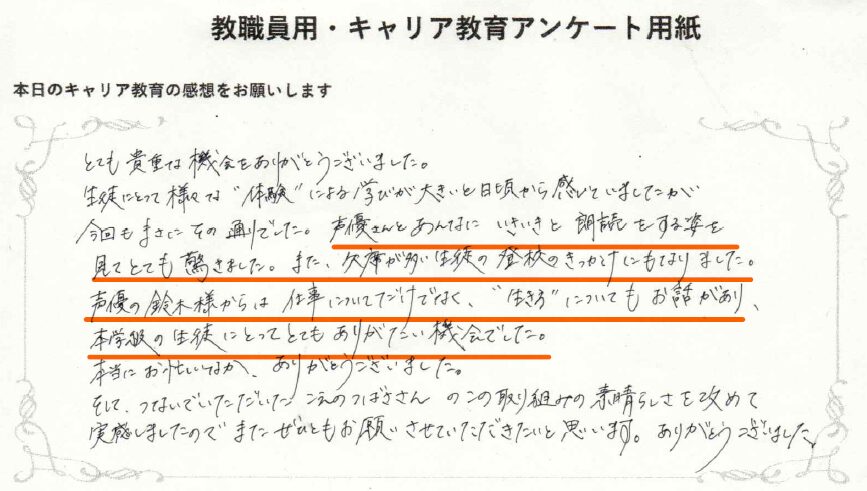 教職員用・キャリア教育アンケート用紙
本日のキャリア教育の感想をお願いします
とても貴重な機会をありがとうございました。
生徒にとって様々な“体験”による学びが大きいと日頃から感じていましたが
今回もまさにその通りでした。声優さんとあんなにいきいきと朗読をする姿を
見てとても驚きました。また、欠席が多い生徒の登校のきっかけにもなりました。
声優の鈴木様からは仕事についてだけでなく、“生き方”についてもお話があり、
本学級の生徒にとってとてもありがたい機会でした。
本当にお忙しいなか、ありがとうございました。
そして、つないでいただいたこえのつばささんのこの取り組みの素晴らしさを改めて
実感しましたのでまたぜひともお願いさせていただきたいと思います。ありがとうございました。